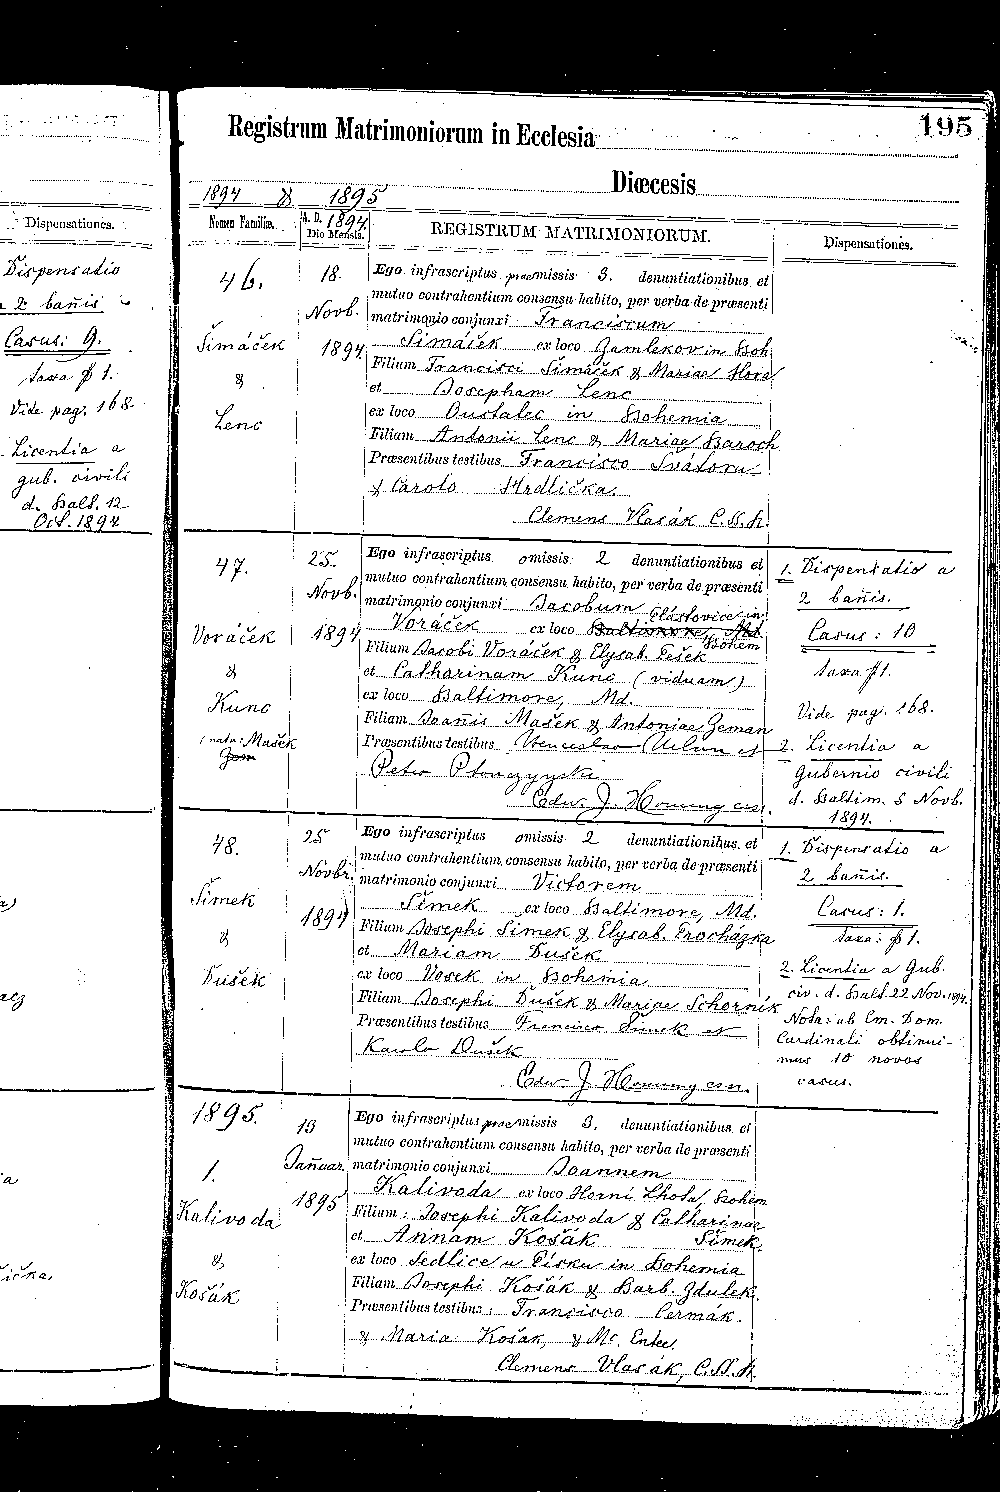 Dispensationes.
Dispensatio
a 2 bañis
Casus: 9.
taxa $ 1.
Vide pag. 168.
Licentia a
gub. civili
d. Balt. 12
Oct. 1894
Registrum Matrimoniorum in Ecclesia
195
Diœcesis
1894 & 1895
Nomen Familiæ.
A. D. 1894
Die Mensis.
REGISTRUM MATRIMONIORUM.
Dispensationes.
46.
Šimáček
&
Lenc
18.
Novb.
1894
Ego infrascriptus præmissis 3. denuntiationibus et
mutuo contrahentium consensu habito, per verba de præsenti
matrimonio conjunxi Franciscum
Šimáček ex loco Zamlekov in Boh
Filium Francisci Šimáček & Mariae Hora
et Josepham Lenc
ex loco Oustalec in Bohemia
Filiam Antonii Lenc & Mariae Baroch
Præsentibus testibus Francisco Svátora
& Carolo Hrdlička.
Clemens Vlasák C.SS.R.
47.
Voráček
&
Kunc
(nata: Mašek
25.
Novb.
1894
Ego infrascriptus omissis 2 denuntiationibus et
mutuo contrahentium consensu habito, per verba de præsenti
matrimonio conjunxi Jacobum
Elástovice in
Voráček ex loco Baltimore, Md.
Bohem
Filium Jacobi Voráček & Elysab. Pešek
et Catharinam Kunc (viduam)
ex loco Baltimore, Md.
Filiam Joañis Mašek & Antoniae Zeman
Præsentibus testibus Venceslao et
Petro
Edw. J.
1. Dispensatio a
2 bañis.
Casus: 10
taxa $1.
Vide pag. 168.
2. Licentia a
Gubernio civili
d. Baltim. 5 Novb.
1894.
48.
Šimek
&
Dušek
25
Novbr.
1894
Ego infrascriptus omissis 2 denuntiationibus et
mutuo contrahentium consensu habito, per verba de præsenti
matrimonio conjunxi Victorem
Šimek ex loco Baltimore, Md.
Filium Josephi Šimek & Elysab. Procházka
et Mariam Dušek
ex loco Vosek in Bohemia
Filiam Josephi Dušek & Mariae Schorník
Præsentibus testibus Francisco Šimek et
Karolo Dušek
Edw J.
1. Dispensatio a
2 bañis.
Casus: 1.
taxa: $ 1.
2. Licentia a Gub.
civ. d. Balt. 22 Nov. 1894.
Nota: ab Em. Dom.
Cardinali obtinui-
mus 10 novos
casus.
1895.
1.
Kalivoda
&
Košák
13
Jañuar.
1895
Ego infrascriptus præmissis 3. denuntiationibus et
mutuo contrahentium consensu habito, per verba de præsenti
matrimonio conjunxi Joannem
Kalivoda ex loco Horní Lhota, Bohem
Filium: Josephi Kalivoda & Catharinae
et Annam Košák Šimek.
ex loco Sedlice u Písku in Bohemia
Filiam Josephi Košák & Barb. Zdulek.
Præsentibus testibus: Francisco Čermák.
& Maria Košák, & Mc. Entee.
Clemens Vlasák, C.SS.R.